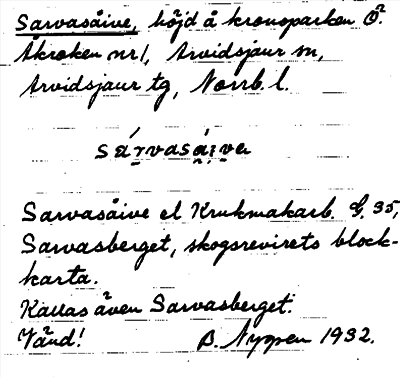 Sarvasåive, höjd å kronoparken Ö.
Åkroken nr1, Arvidsjaur sn,
Arvidsjaur tg, Norrb. l.
sárvasái̯va
Sarvasåive el Krukmakarb. G. 35,
Sarvasberget, skogsrevirets block-
karta.
Kallas även Sarvasberget.
Vänd! B. Nyppen 1932.